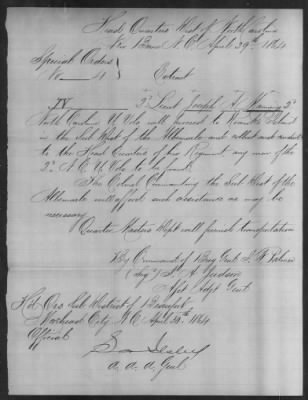 Head Quarters Dist of North Carolina
New Berne N.C. April 29th 1864
Special Orders
No 4
Extract
IV 2d Lieut Joseph H. 2d
North Carolina U. Vols will proceed to Roanoke Island
in the Sub Dist of the Albemarle and collect and conduct
to the Head Quarters of his Regiment any men of the
2d N.C. U. Vols to be found.
The Colonel Commanding the Sub Dist of the
Albemarle will afford such assistance as may be
necessary
Quarter Masters Dept will furnish transportation
By Command of Brig Genl I. N. Palmer
(Sig) J. A. Judson
Asst Adjt Genl
Hd Qrs Sub District of Beaufort
Morehead City N.C. April 30th 1864
Official
A. A. A. Genl